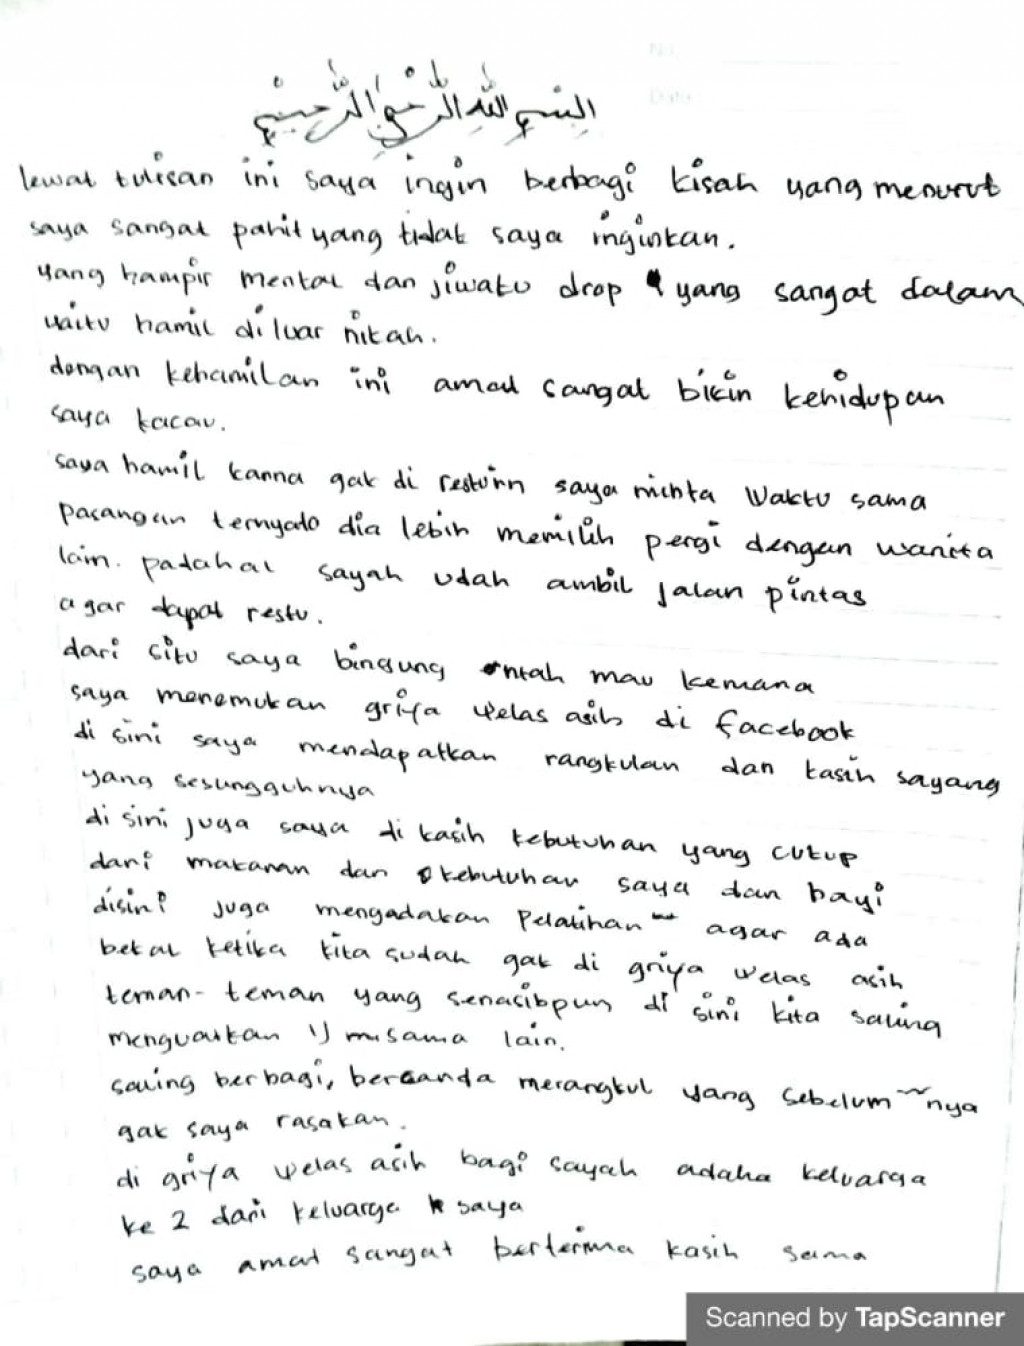 بسم الله الرحمن الرحيم
lewat tulisan ini saya ingin berbagi kisah yang menurut
saya sangat pahit yang tidak saya inginkan.
yang hampir mental dan jiwaku drop yang sangat dalam
yaitu hamil di luar nikah.
dengan kehamilan ini amat sangat bikin kehidupan
saya kacau.
saya hamil karna gak di restuin saya minta waktu sama
pasangan ternyata dia lebih memilih pergi dengan wanita
lain. padahal sayah udah ambil jalan pintas
agar dapat restu.
dari situ saya bingung entah mau kemana
saya menemukan griya welas asih di facebook
di sini saya mendapatkan rangkulan dan kasih sayang
yang sesungguhnya
di sini juga saya di kasih kebutuhan yang cukup
dari makanan dan kebutuhan saya dan bayi
disini juga mengadakan pelatihan agar ada
bekal ketika kita sudah gak di griya welas asih
teman-teman yang senasibpun di sini kita saling
menguatkan 1) sama lain.
saling berbagi, bercanda merangkul yang sebelumnya
gak saya rasakan.
di griya welas asih bagi sayah adaha keluarga
ke 2 dari keluarga saya
saya amat sangat berterima kasih sama
Scanned by TapScanner